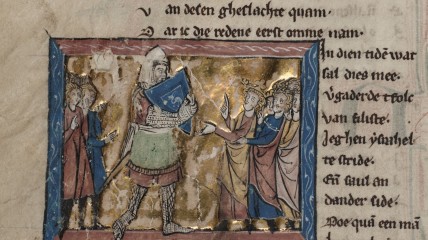 Van desen gheslachte quam.
Dar ic die redene eerst omme nam.
In dien tiden war
sal dies mee.
Vgaderde tfolc
van filiste.
Jeghen ysrahel
te stride.
Eñ saul an
dander side.
Doe quā een mā